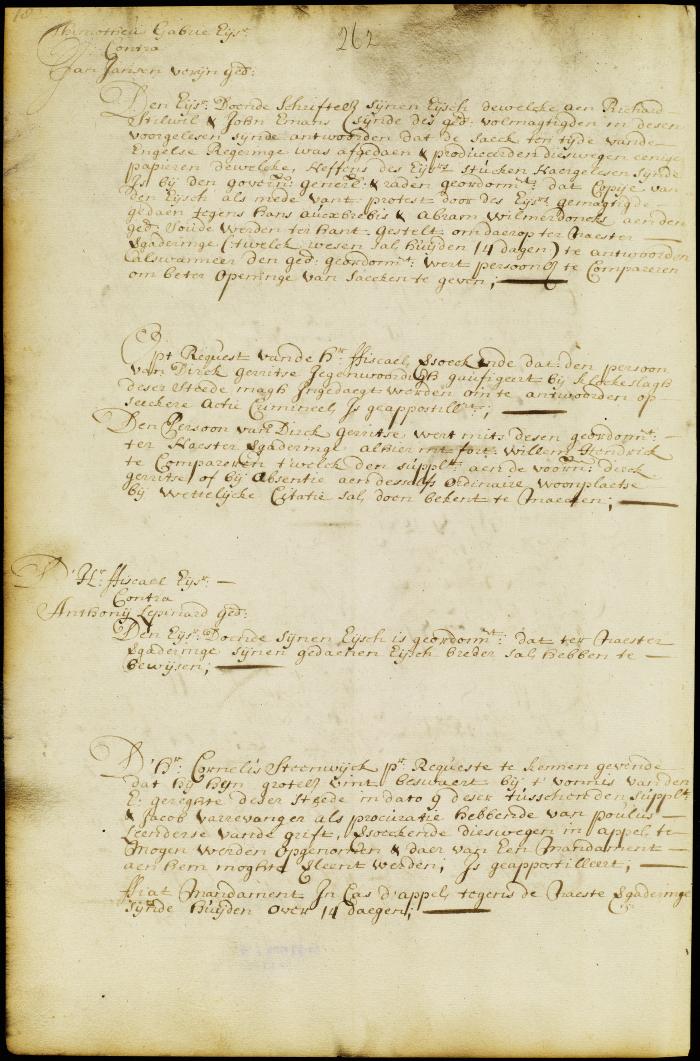 262
Thimotheus Gabrie Eyss.r
Contra
Jan Jansen verijn ged:
Den Eyss.r Doende Schriftel. sijnen Eijsch dewelcke aen Richard
Stilwil & John Emans (sijnde des ged: volmagtigden in desen
voorgelesen sijnde antwoorden dat de saeck ten tijde vande
Engelse Regeringe was afgedaen & produceerden dieswegen eenige
papieren dewelcke, Neffens des Eyss.rs stucken Naergelesen sijnde
Is bij den govern.r gener.l & raden geordonn.t dat Copije van
den Eijsch als mede vant protest door des Eyss.rs gemagtigde
gedaen tegens hans & Abram Wilmerdoncks aen den
ged: soude werden ter hant gestelt om daerop ter Naester
vgaderinge (twelck wesen sal huijden 14 dagen) te antwoorden
alswanneer den ged: geordonn.t wert persoonl. te Compareren
om beter openinge van saecken te geven;
Opt Request vande h.r ffiscael, vsoeckende dat den persoon
van Dirck gerritse Jegenwoordigh guufigeert bij klockeslagh
deser Steede magh Ingedaegt werden om te antwoorden op
seeckere Actie Crimineel, Is geappostill.t;
Den Persoon van Dirck Gerritse wert mits desen geordonn.t
ter Naester vgaderinge alhier int fort Willem Hendrick
te Compareren twelck den suppl.t aen de voorn: Dirck
gerritse of bij Absentie aen desselfs ordinaire woonplaetse
bij wettelijcke Citatie sal doen bekent te maecken;
D'H.r ffiscael Eyss.r
Contra
Anthonij Lepinard ged:
Den Eyss.r Doende sijnen Eijsch is geordonn.t dat ter Naester
vgaderinge sijnen gedaenen Eijsch breder sal hebben te
bewijsen;
D'h.r Cornelis Steenwijck p.r Requeste te kennen gevende
dat hij hem grotel. vint beswaert bij t vonnis van den
E: gerighte deser Steede in dato 9 deser tusschen den suppl.t
& Jacob varrevanger als procuratie hebbende van poulus
Leenderse vande grift, vsoeckende dieswegen in appel te
mogen werden opgenomen & daer van Een Mandament
aen hem moghte vleent werden; Is geappostilleert;
ffiat Mandament In Cas d'appel, tegens de Naeste vgaderinge
sijnde huijden over 14 daegen;